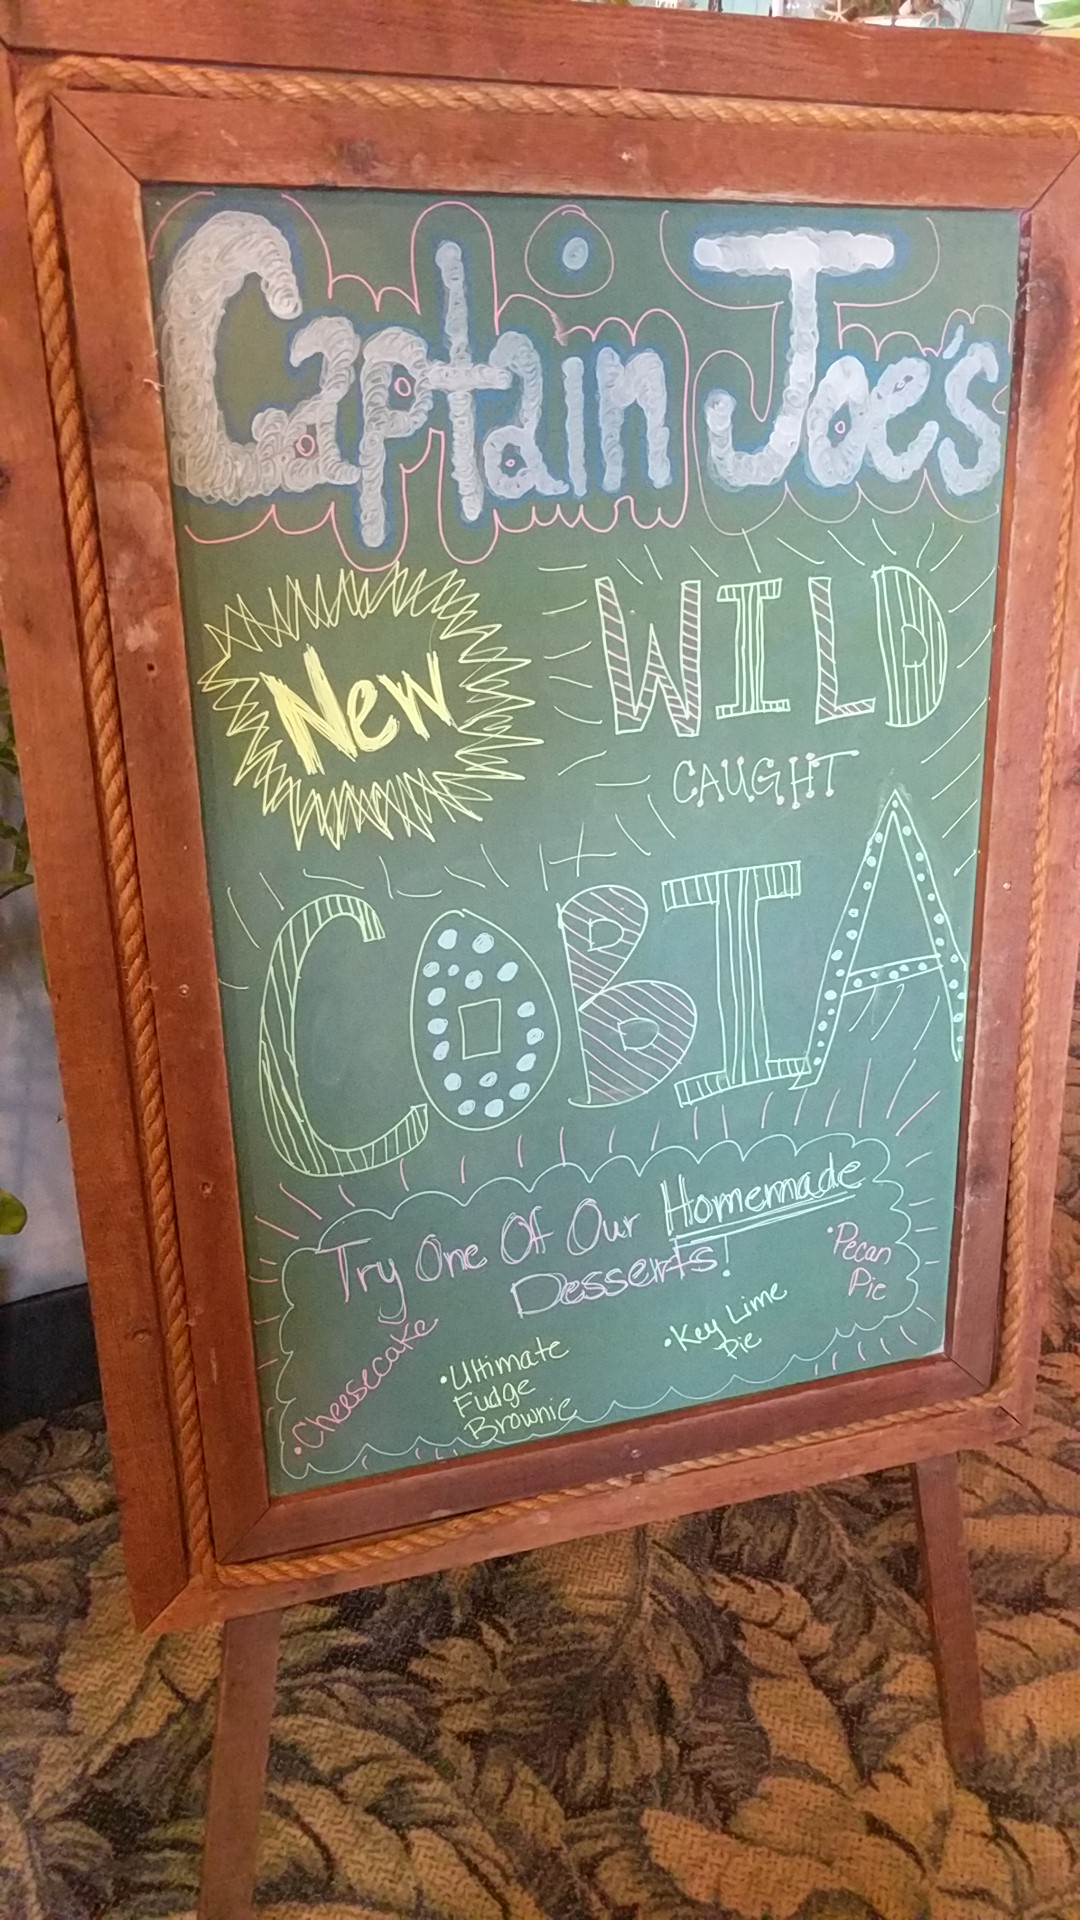 Captain Joe's
New
WILD
CAUGHT
COBIA
Try One Of Our Homemade
Desserts!
•Cheesecake
•Ultimate
Fudge
Brownie
•Key Lime
Pie
•Pecan
Pie